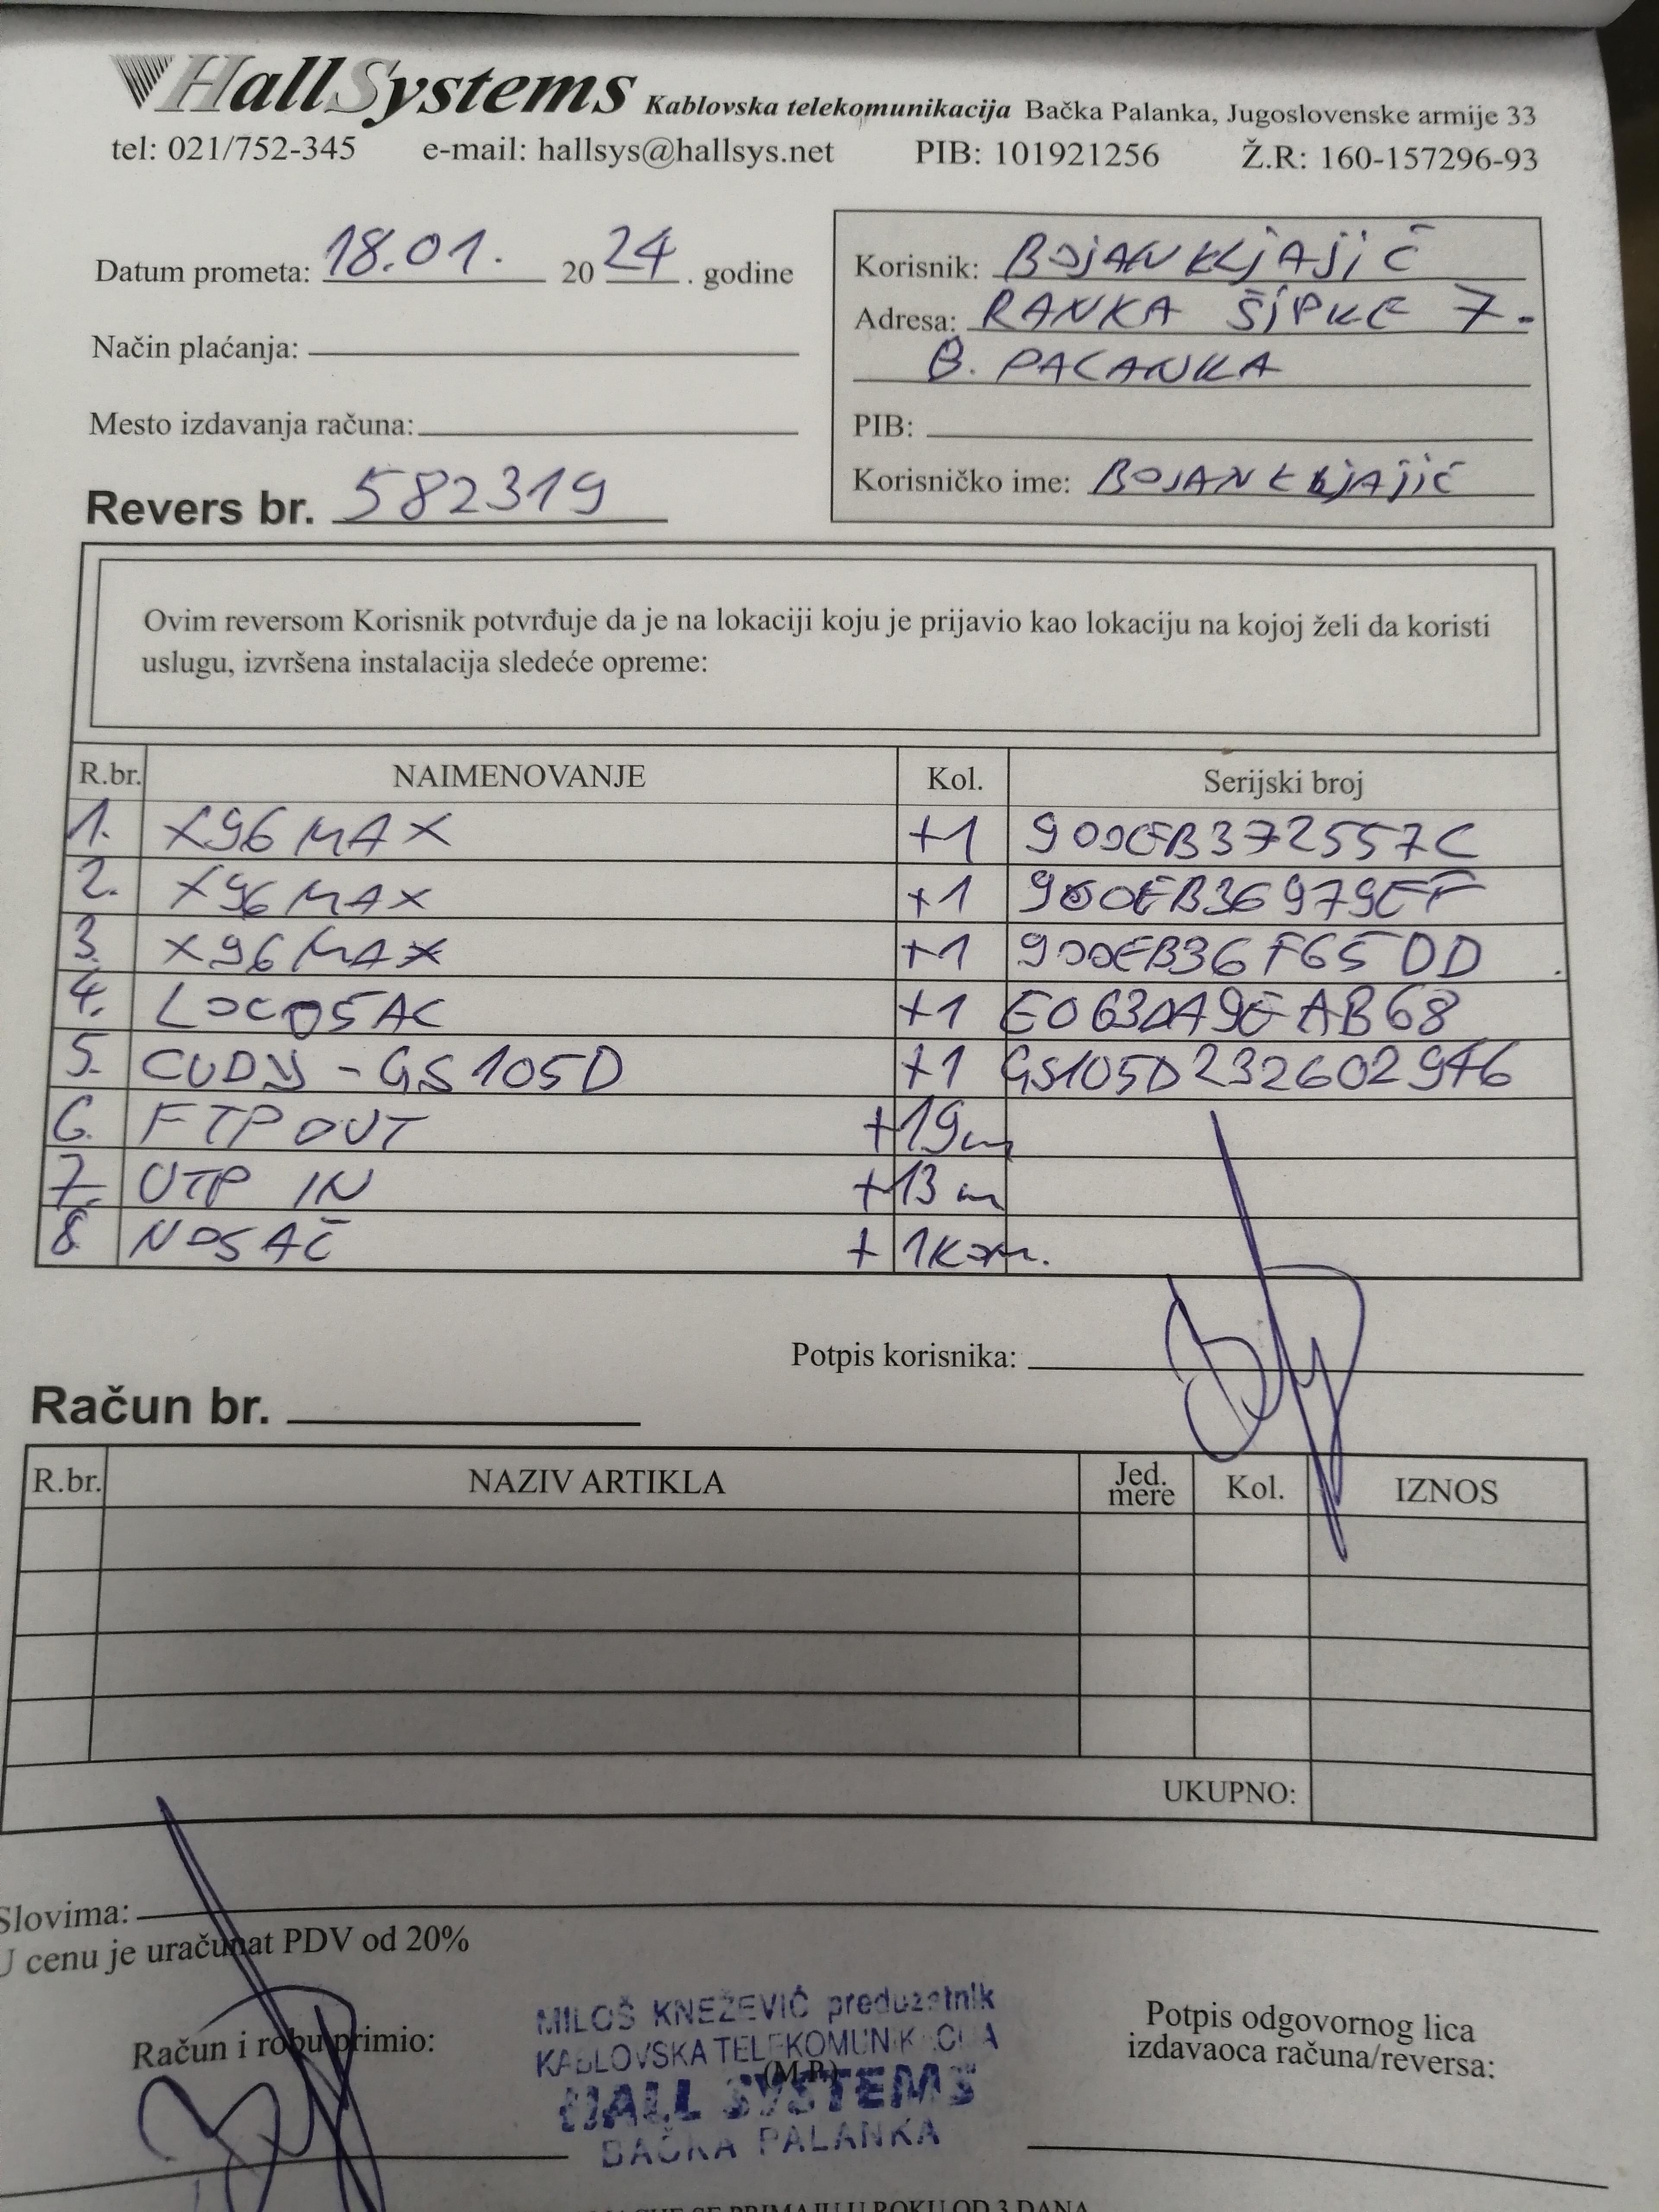 HallSystems Kablovska telekomunikacija Bačka Palanka, Jugoslovenske armije 33
tel: 021/752-345 e-mail: hallsys@hallsys.net PIB: 101921256 Ž.R: 160-157296-93
Datum prometa: 18.01. 2024. godine
Način plaćanja:
Mesto izdavanja računa:
Revers br. 582319
Korisnik: BOJAN KLJAJIĆ
Adresa: RANKA ŠIPKE 7.
B. PALANKA
PIB:
Korisničko ime: BOJAN KLJAJIĆ
Ovim reversom Korisnik potvrđuje da je na lokaciji koju je prijavio kao lokaciju na kojoj želi da koristi
uslugu, izvršena instalacija sledeće opreme:
R.br. NAIMENOVANJE Kol. Serijski broj
1. X96 MAX +1 900EB372557C
2. X96 MAX +1 900EB36979EF
3. X96 MAX +1 900EB36F65DD
4. LOCO5AC +1 E063DA9EAB68
5. CUDY - GS105D +1 GS105D232602946
6. FTP OUT +19m
7. UTP IN +13m
8. NOSAČ +1 kom.
Potpis korisnika:
Račun br.
R.br. NAZIV ARTIKLA Jed. mere Kol. IZNOS
UKUPNO:
Slovima:
U cenu je uračunat PDV od 20%
Račun i robu primio:
MILOŠ KNEŽEVIĆ preduzetnik
KABLOVSKA TELEKOMUNIKACIJA
(M.P.)
HALL SYSTEMS
BAČKA PALANKA
Potpis odgovornog lica
izdavaoca računa/reversa:
SE PRIMAJU U ROKU OD 3 DANA